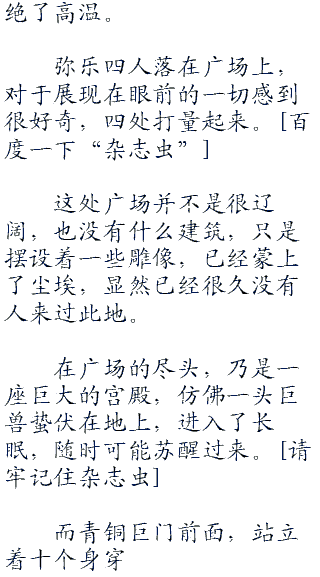 绝了高温。
弥乐四人落在广场上，
对于展现在眼前的一切感到
很好奇，四处打量起来。[百
度一下“杂志虫”]
这处广场并不是很辽
阔，也没有什么建筑，只是
摆设着一些雕像，已经蒙上
了尘埃，显然已经很久没有
人来过此地。
在广场的尽头，乃是一
座巨大的宫殿，仿佛一头巨
兽蛰伏在地上，进入了长
眠，随时可能苏醒过来。[请
牢记住杂志虫]
而青铜巨门前面，站立
着十个身穿